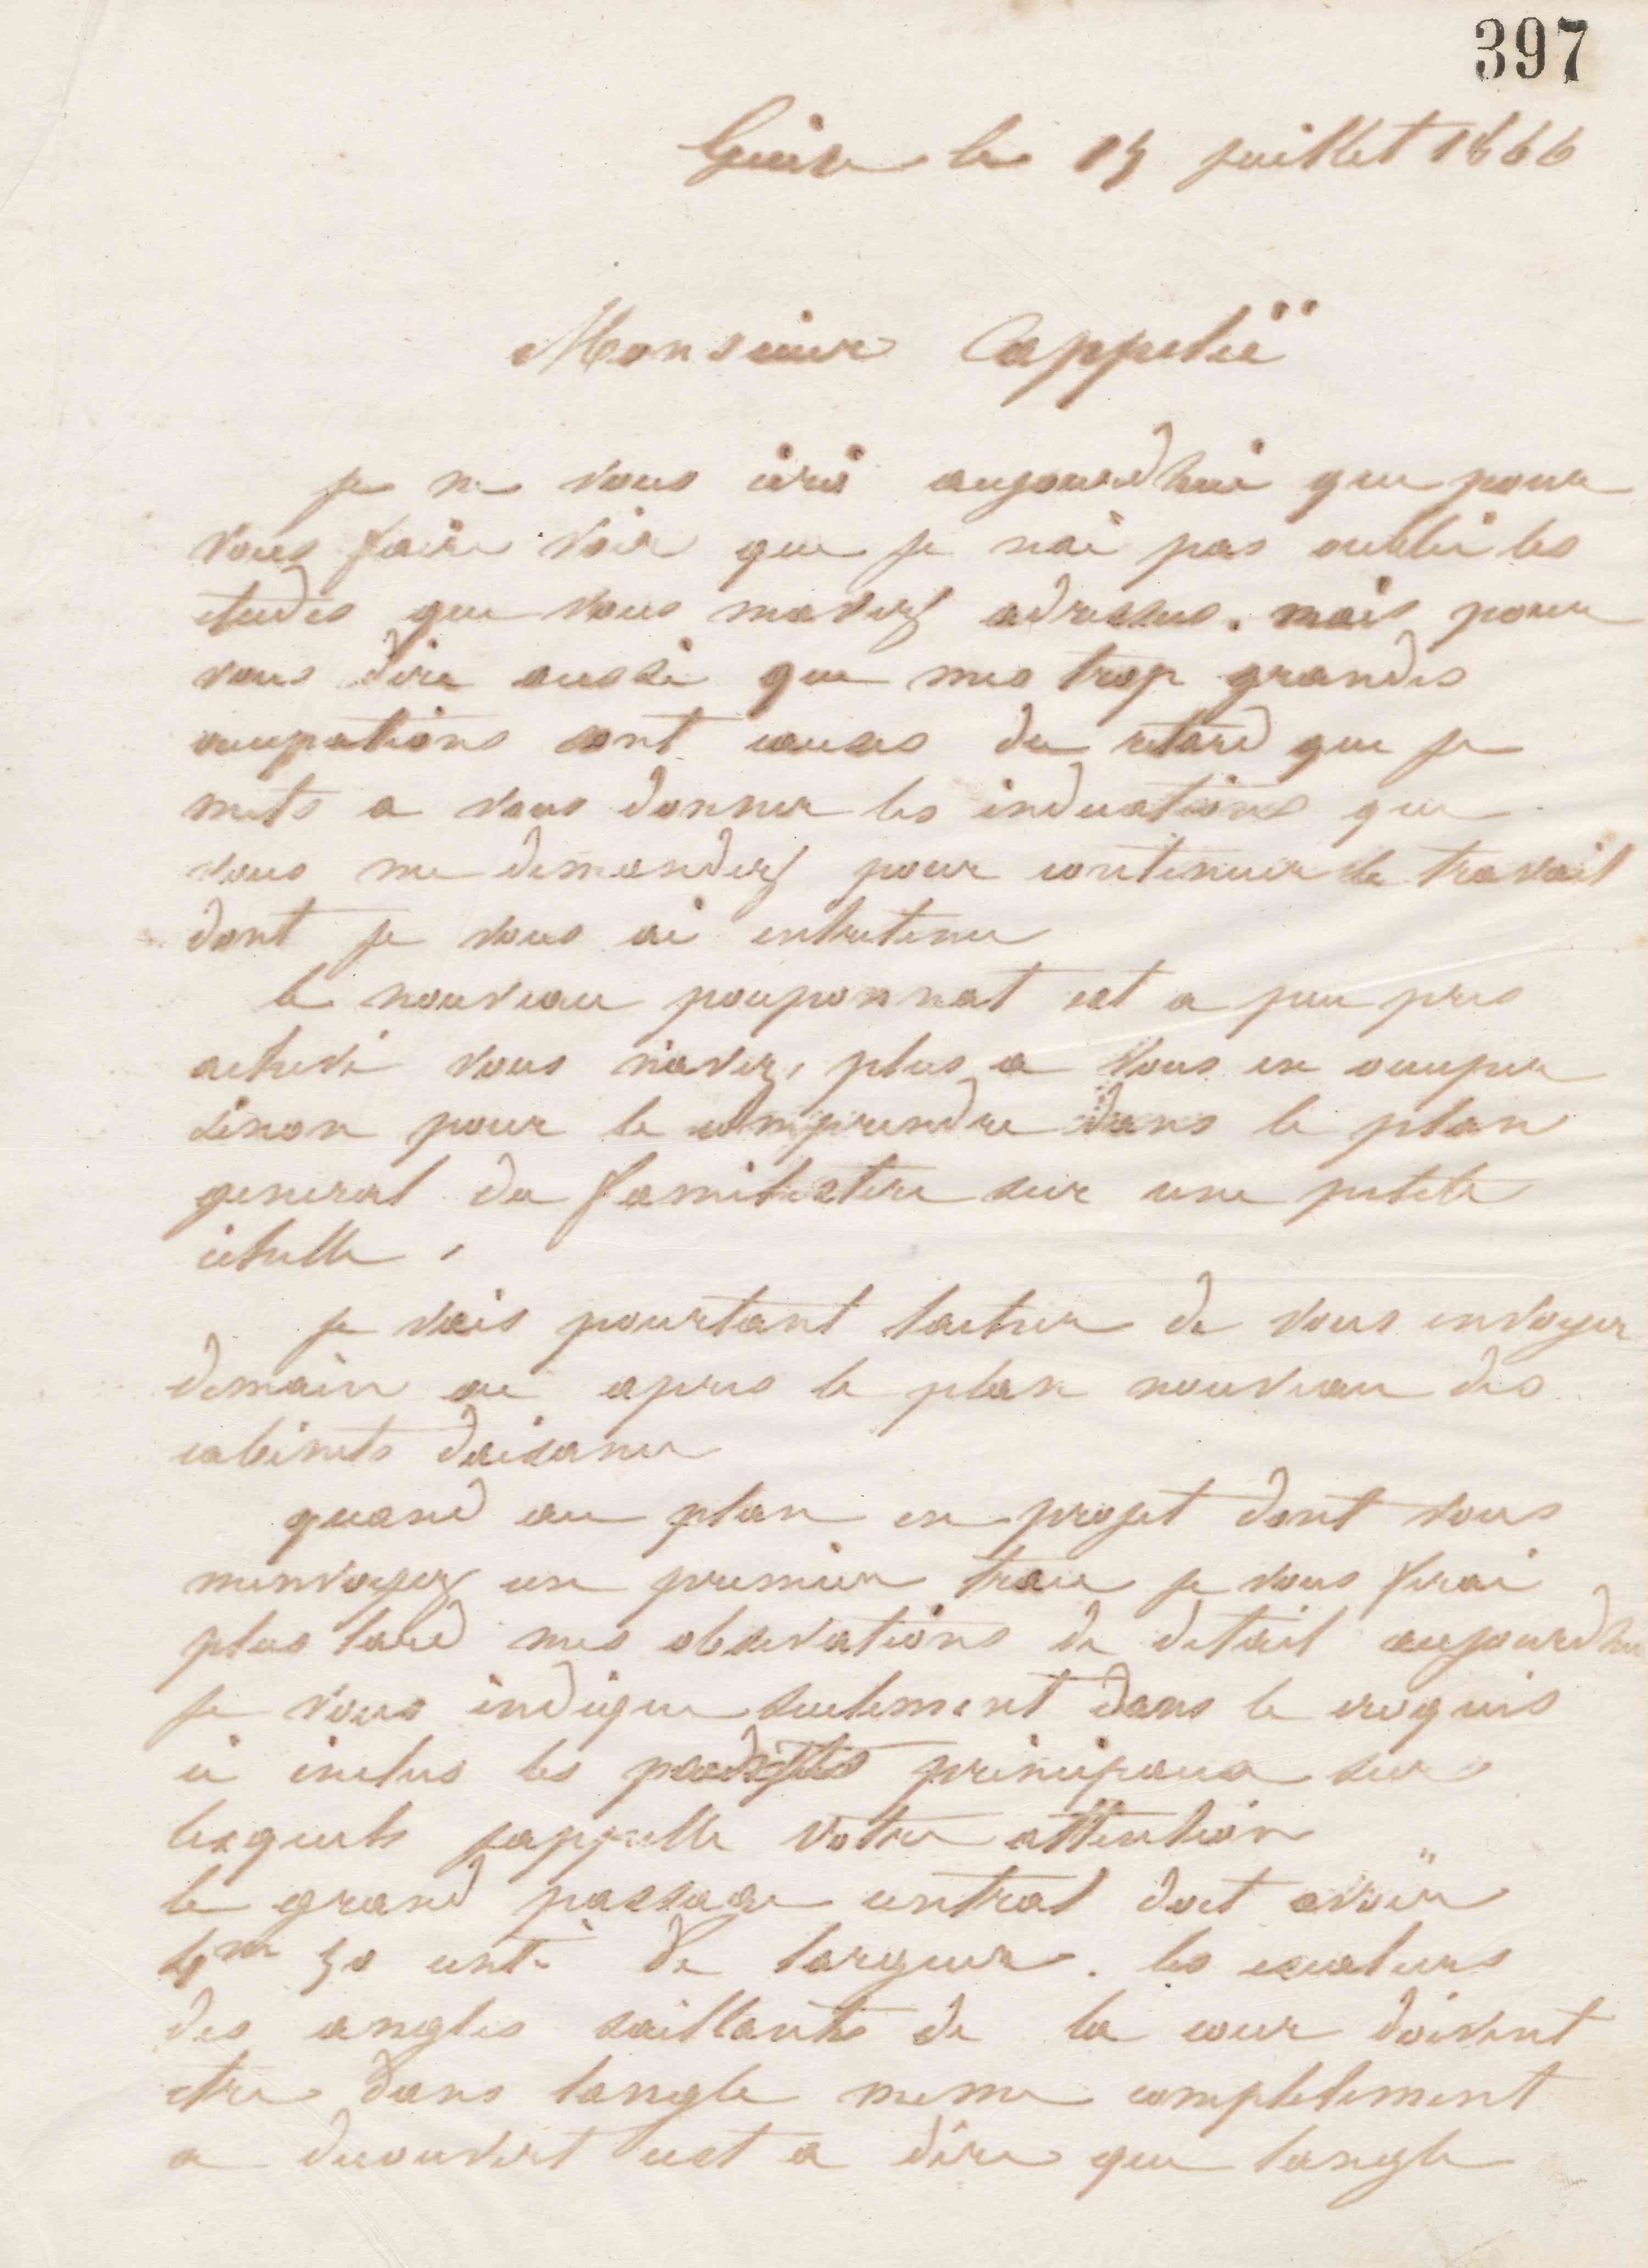 397
Guise le 15 juillet 1866
Monsieur Cappelië
je ne vous écris aujourdhui que pour
vous faire voir que je nai pas oublié les
etudes que vous mavez adressees. mais pour
vous dire aussi que mes trop grandes
occupations sont causes du retard que je
mets a vous donner les indications que
vous me demandez pour continuer le travail
dont je vous ai entretenu
le nouveau pouponnat est a peu pres
achevé vous navez, plus a vous en occuper
sinon pour le comprendre dans le plan
general du familistere sur une petite
echelle,
je vais pourtant tacher de vous envoyer
demain ou apres le plan nouveau des
cabinets daisance
quand au plan en projet dont vous
menvoyez un premier tracé je vous ferai
plus tard mes observations de detail aujourdhui
je vous indique seulement dans le croquis
ci inclus les principaux sur
lesquels jappelle votre attention
le grand passage central doit avoir
4m 50 cent. de largeur. les escaliers
des angles saillants de la cour doivent
etre dans langle meme completement
a decouvert cest a dire que langle